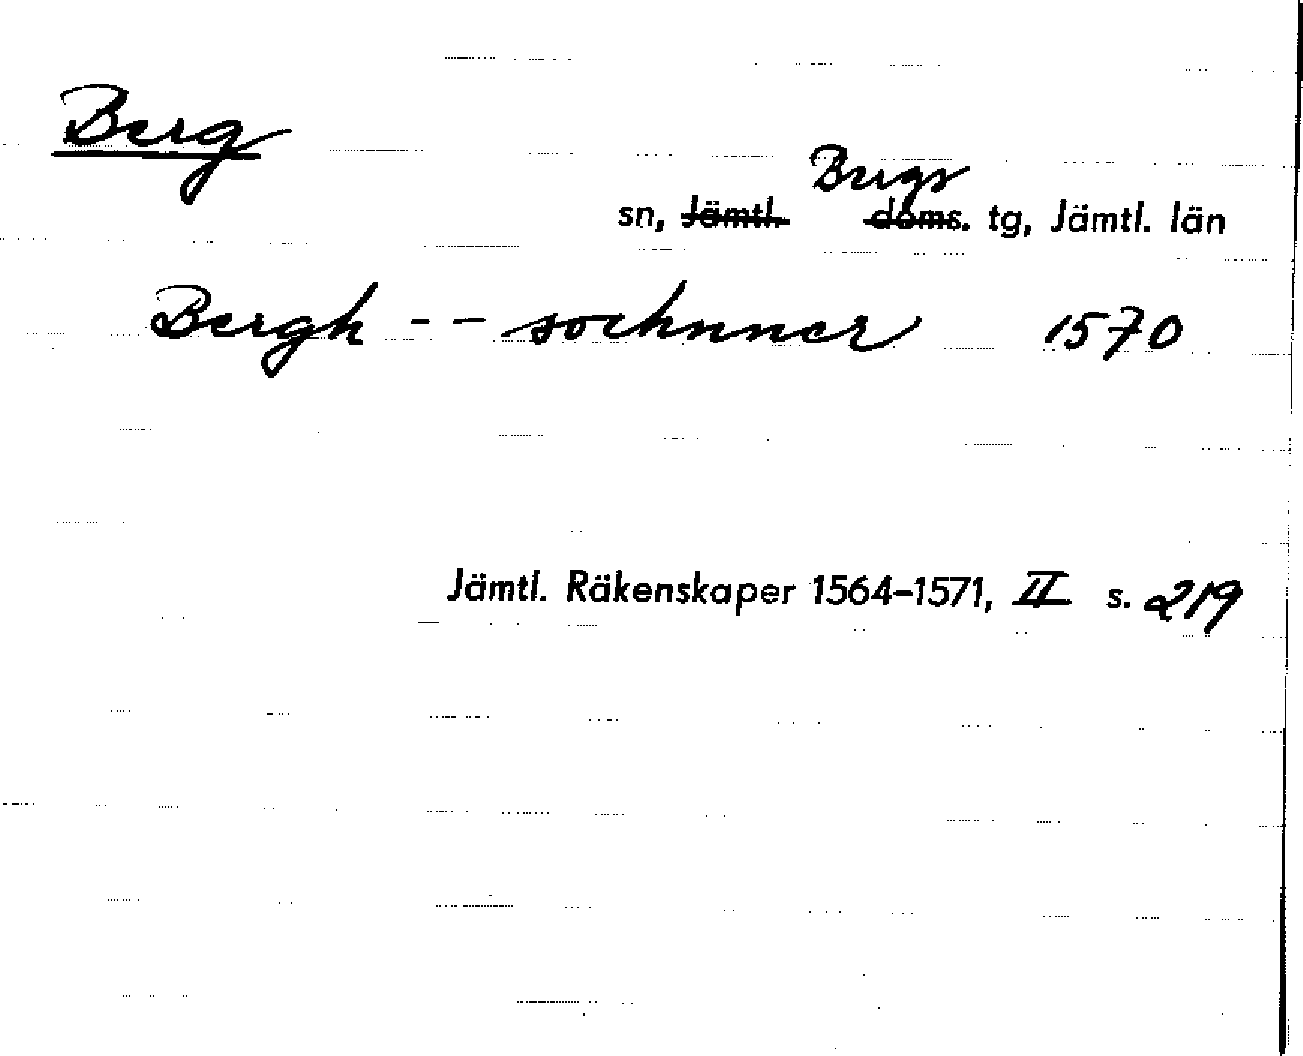 Berg
Bergs
sn, Jämtl. doms. tg, Jämtl. län
Bergh -- sochnner 1570
Jämtl. Räkenskaper 1564-1571, II s. 219